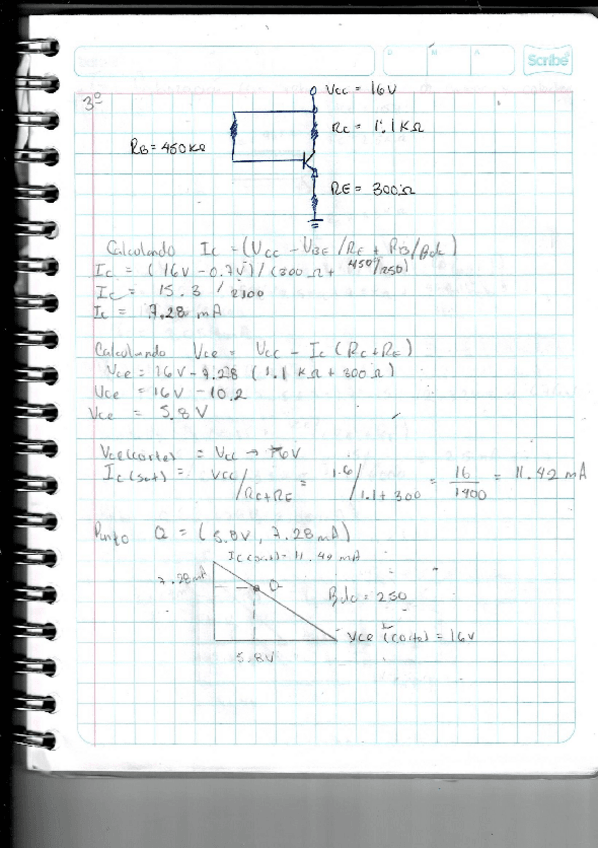 Scribe
D M A
3º
Vcc = 16V
Rc = 1.1KΩ
RB = 450KΩ
RE = 300Ω
Calculando Ic = (Vcc - VBE/RE + RB/Bdc)
Ic = (16V - 0.7V)/(300Ω + 450/250)
Ic = 15.3 / 2100
Ic = 7.28 mA
Calculando Vce = Vcc - Ic (Rc+RE)
Vce = 16V - 7.28 (1.1 KΩ + 300Ω)
Vce = 16V - 10.2
Vce = 5.8 V
Vce(corte) = Vcc → 16V
Ic(sat) = Vcc/Rc+RE = 1.6/1.1+300 = 16/1400 = 11.42 mA
Punto Q = (5.8V, 7.28mA)
Ic(sat) = 11.42 mA
7.28mA
Q
Bdc = 250
Vce (corte) = 16V
5.8V